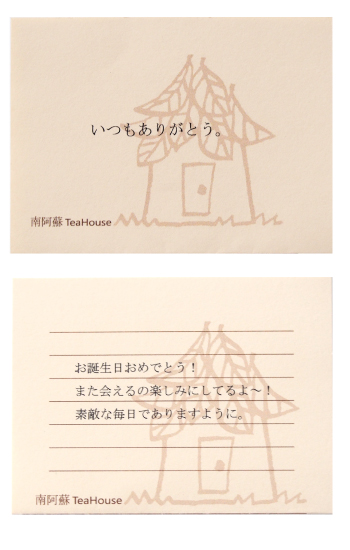 いつもありがとう。
南阿蘇 TeaHouse
お誕生日おめでとう！
また会えるの楽しみにしてるよ～！
素敵な毎日でありますように。
南阿蘇 TeaHouse